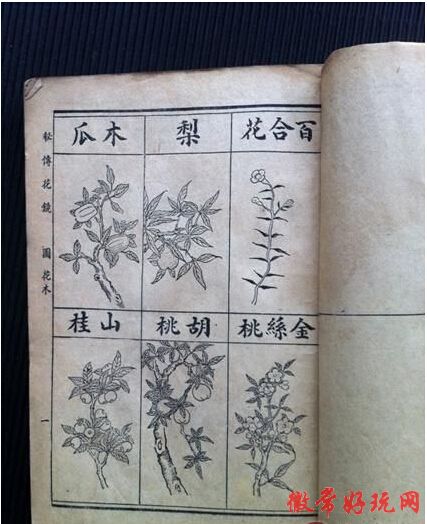 百合花
梨
木瓜
金絲桃
胡桃
山桂
秘傳花鏡 圖花木 一
徽常好玩网